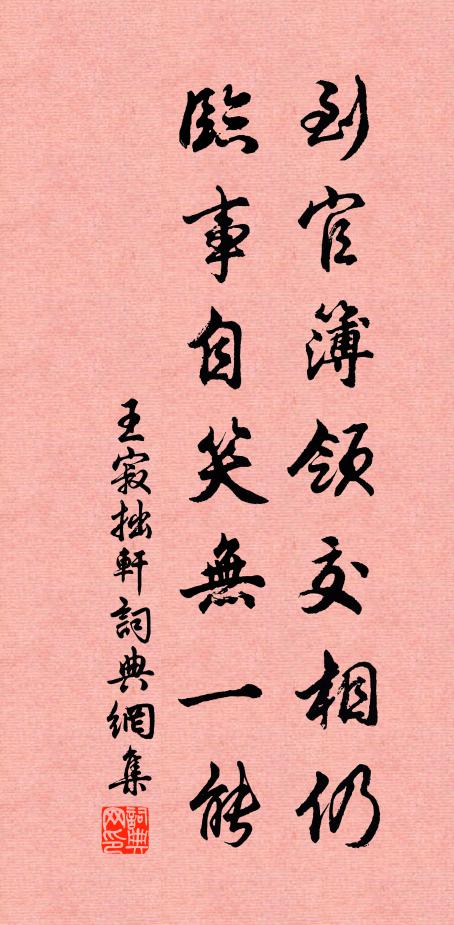 到官簿領交相仍
臨事自笑無一能
王寂拙軒詞典網集
詞典网印